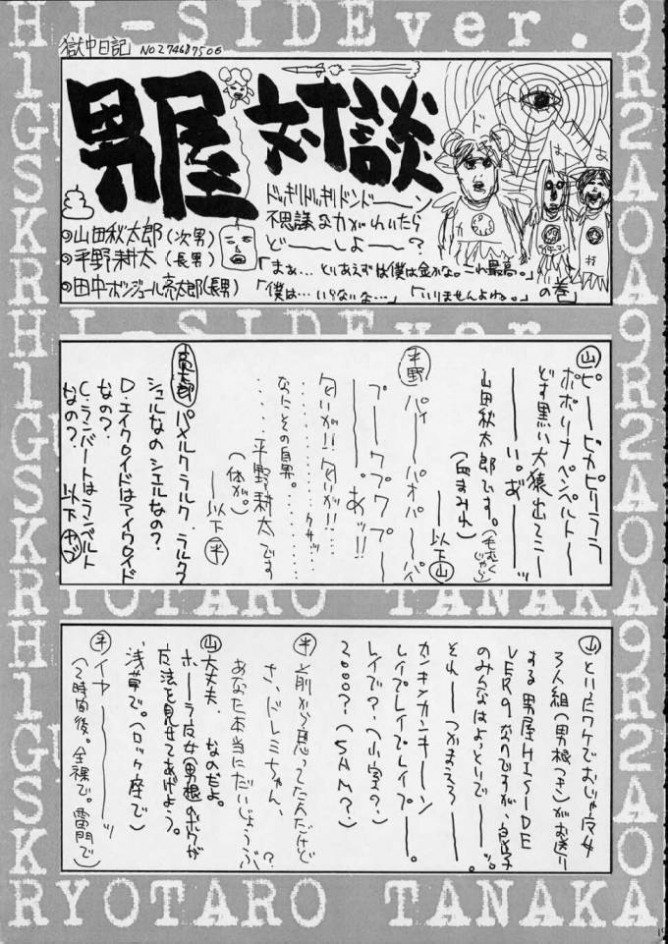 HI-SIDEver.9
獄中日記 NO274689506
男屋対談
ドッキリドッキリドンドーン
不思議な力がわいたら
どーしよー?
山田秋太郎(次男)
平野耕太(長男)
田中ボンジュール亮太郎(長男)
「まぁ…とりあえずは僕は金かな。これ最高。」
「僕は…いらないな…」「いりませんよね。」の巻
山 ピーーピカピリララ
ポポリナペペルトー
どす黒い犬猿出てこー
ーーい。おーーッ
山田秋太郎です。(毛むくじゃら)(血まみれ)
ー以下山
平野 パイーパオパーパイ
プーープワプワプー
ーー。あッ!!
匂いが!!匂いが!!
なにその自界。
平野耕太です
(体が。)
ー以下平
亮太郎 パメルクラルク、ラルク
シェルなのシエルなの?
D・エイクロイドはアイクロイド
なの?
C・ランバートはランベルト
なの?
以下
山 というワケでおじゃ魔女
3人組(男根つき)がお送り
する男屋HISIDE
VER9なのですが、良い子
のみんなはよっといでーーッ。
それーーつかまえろーー。
カンキンカンキーン
レイプレイプレイプー。
レイプ?(小室?)
2000?(SAM?)
平 前から思ってたんだけど
さ、ドレミちゃん、
あなた本当にだいじょうぶ?
山 大丈夫、なのだよ。
ホーラ魔女(男根)のボクが
魔法を見せてあげよう。
浅草で。(ロック座で)
平 イヤーーーーッ
(2時間後。全裸で。雷門で)
RYOTARO TANAKA
RYOTARO TANAKA